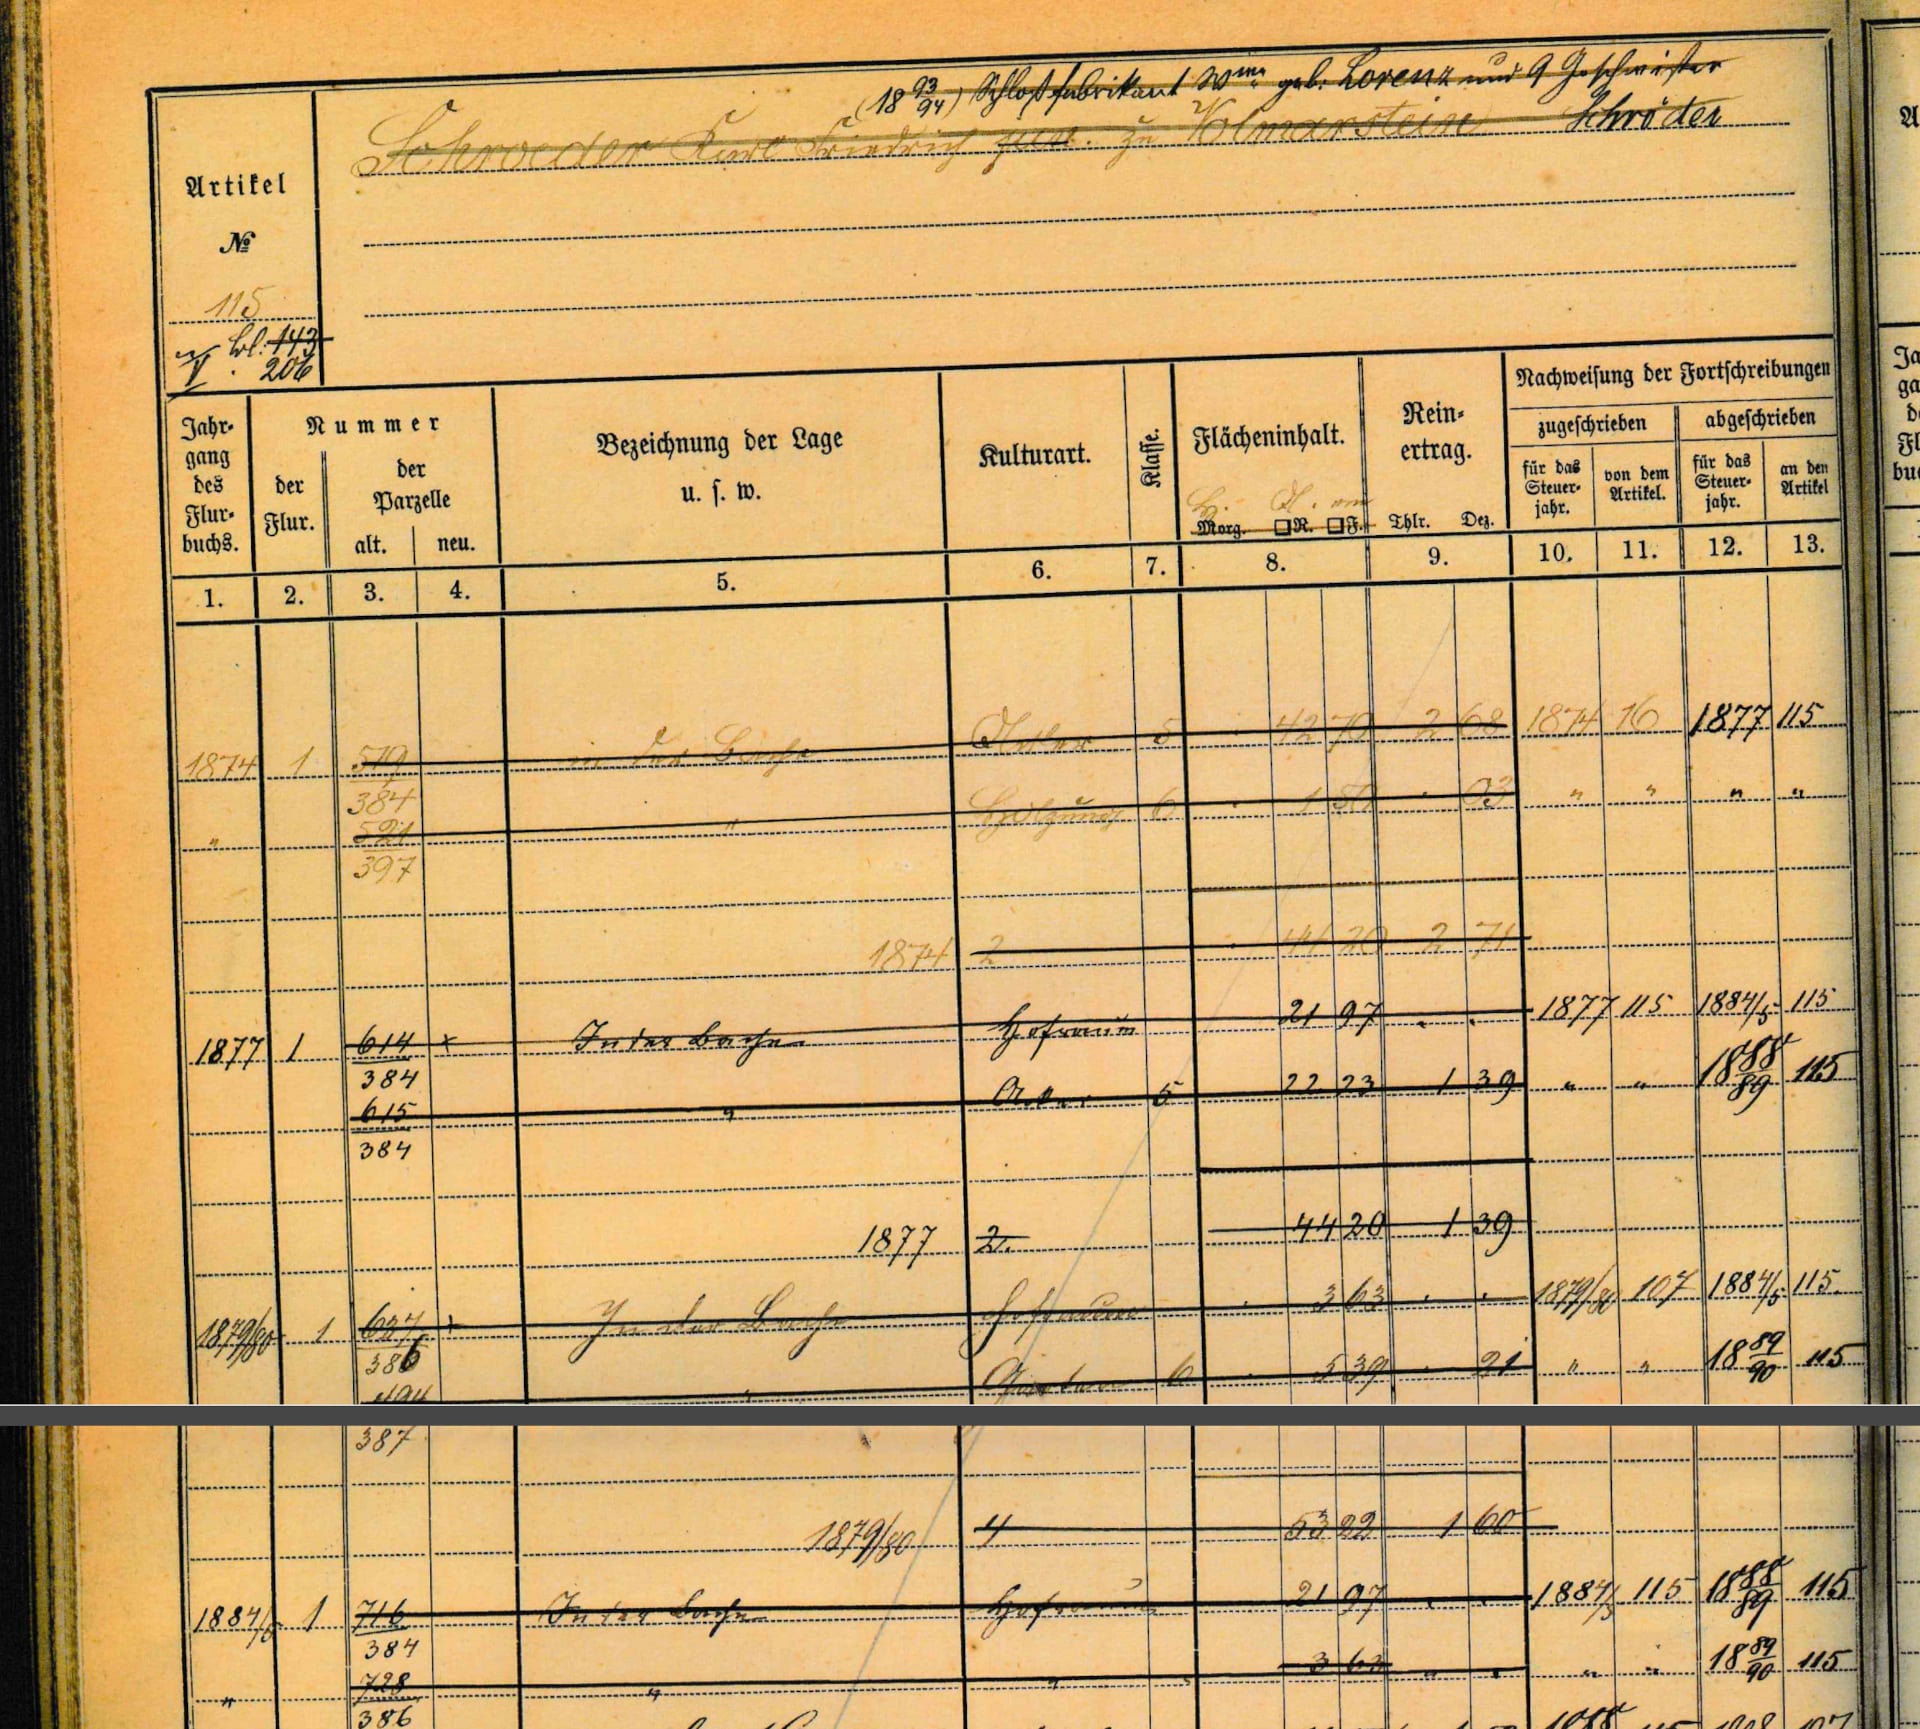 (18 93/94) Schloßfabrikant Wwe geb. Lorenz und 9 Geschwister
Schroeder Karl Friedrich zu Volmarstein Schröder
Artikel
№
115
Bl. 143
V 206
Jahrgang des Flurbuchs. Nummer Bezeichnung der Lage u. s. w. Kulturart. Klasse. Flächeninhalt. Reinertrag. Nachweisung der Fortschreibungen
der Flur. der Parzelle zugeschrieben abgeschrieben
alt. neu. Morg. □R. □F. Thlr. Dez. für das Steuerjahr. von dem Artikel. für das Steuerjahr. an den Artikel
1. 2. 3. 4. 5. 6. 7. 8. 9. 10. 11. 12. 13.
1874 1 519/384 in der Bache Acker 5 42 70 2 68 1874 76 1877 115
" 521/397 " Holzung 6 1 50 03 " " " "
1874 2 44 20 2 71
1877 1 614/384 + In der Bache Hofraum 21 97 . . 1877 115 1884/5 115
615/384 " Acker 5 22 23 1 39 " " 1888/89 115
1877 2. 44 20 1 39
1879/80 1 627/386 + In der Bache Hofraum 3 63 . . 1879/80 107 1884/5 115.
387 " Garten 6 5 39 . 21 " " 1889/90 115
1879/80 4 53 22 1 60
1884/5 1 716/384 In der Bache Hofraum 21 97 . . 1884/5 115 1888/89 115
" 728/386 " " 3 63 " . " " 1889/90 115